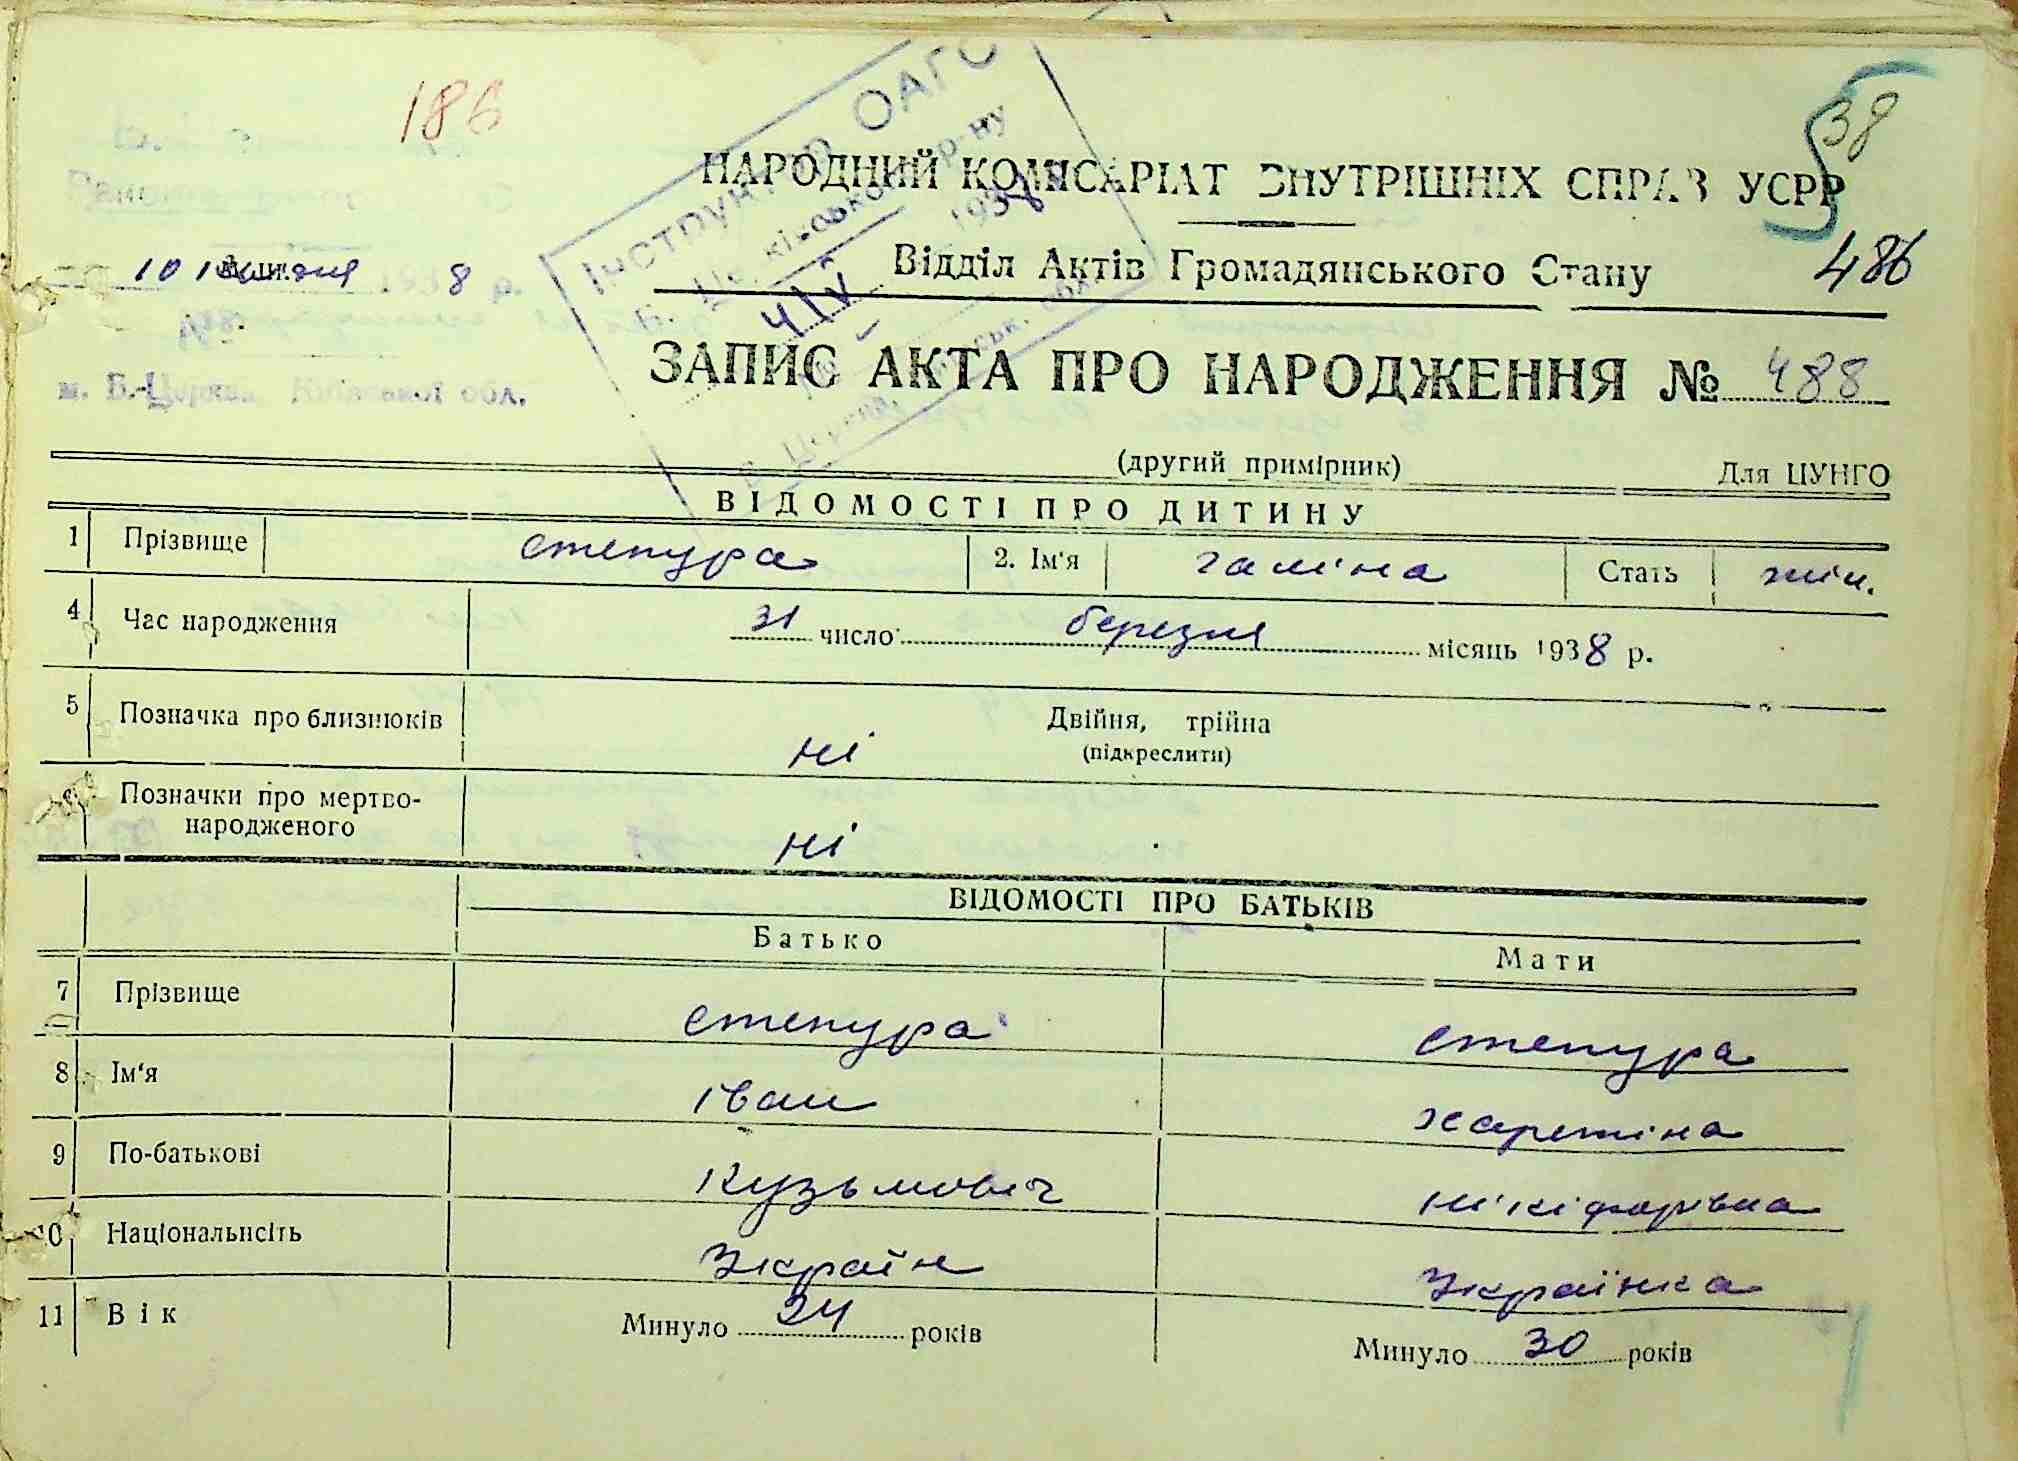 186
38
Інструктор ОАГС
Б. Церківського р-ну
4 IV 1938
НАРОДНИЙ КОМІСАРІАТ ВНУТРІШНІХ СПРАВ УСРР
Відділ Актів Громадянського Стану 486
10 1938 р.
м. Б.-Церква, Київської обл.
ЗАПИС АКТА ПРО НАРОДЖЕННЯ № 488
(другий примірник) Для ЦУНГО
ВІДОМОСТІ ПРО ДИТИНУ
1 Прізвище степура 2. Ім'я галіна Стать жін.
4 Час народження 31 число березня місяць 1938 р.
5 Позначка про близнюків ні Двійня, трійна
(підкреслити)
6 Позначки про мертво-
народженого ні
ВІДОМОСТІ ПРО БАТЬКІВ
Батько Мати
7 Прізвище степура степура
8 Ім'я Іван харетіна
9 По-батькові Кузьмовіч нікіфорівна
10 Національність Україн Українка
11 Вік Минуло 34 років Минуло 30 років